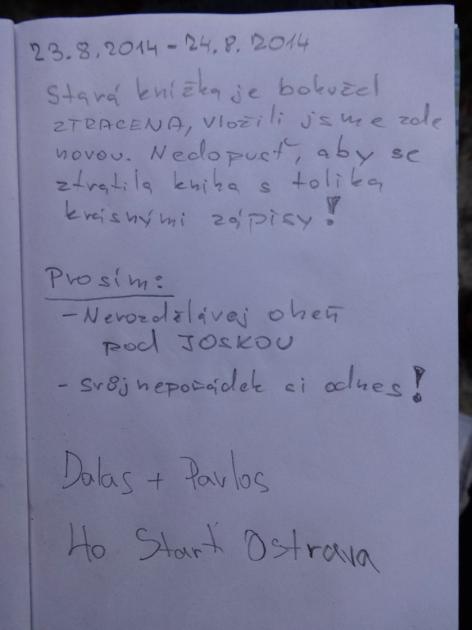 23.8.2014 - 24.8.2014
Stará knížka je bohužel
ZTRACENA, vložili jsme zde
novou. Nedopusť, aby se
ztratila kniha s tolika
krásnými zápisy!
Prosím:
- Nerozdělávej oheň
pod JOSKOU
- svůj nepořádek si odnes!
Dalas + Pavlos
Ho Starť Ostrava